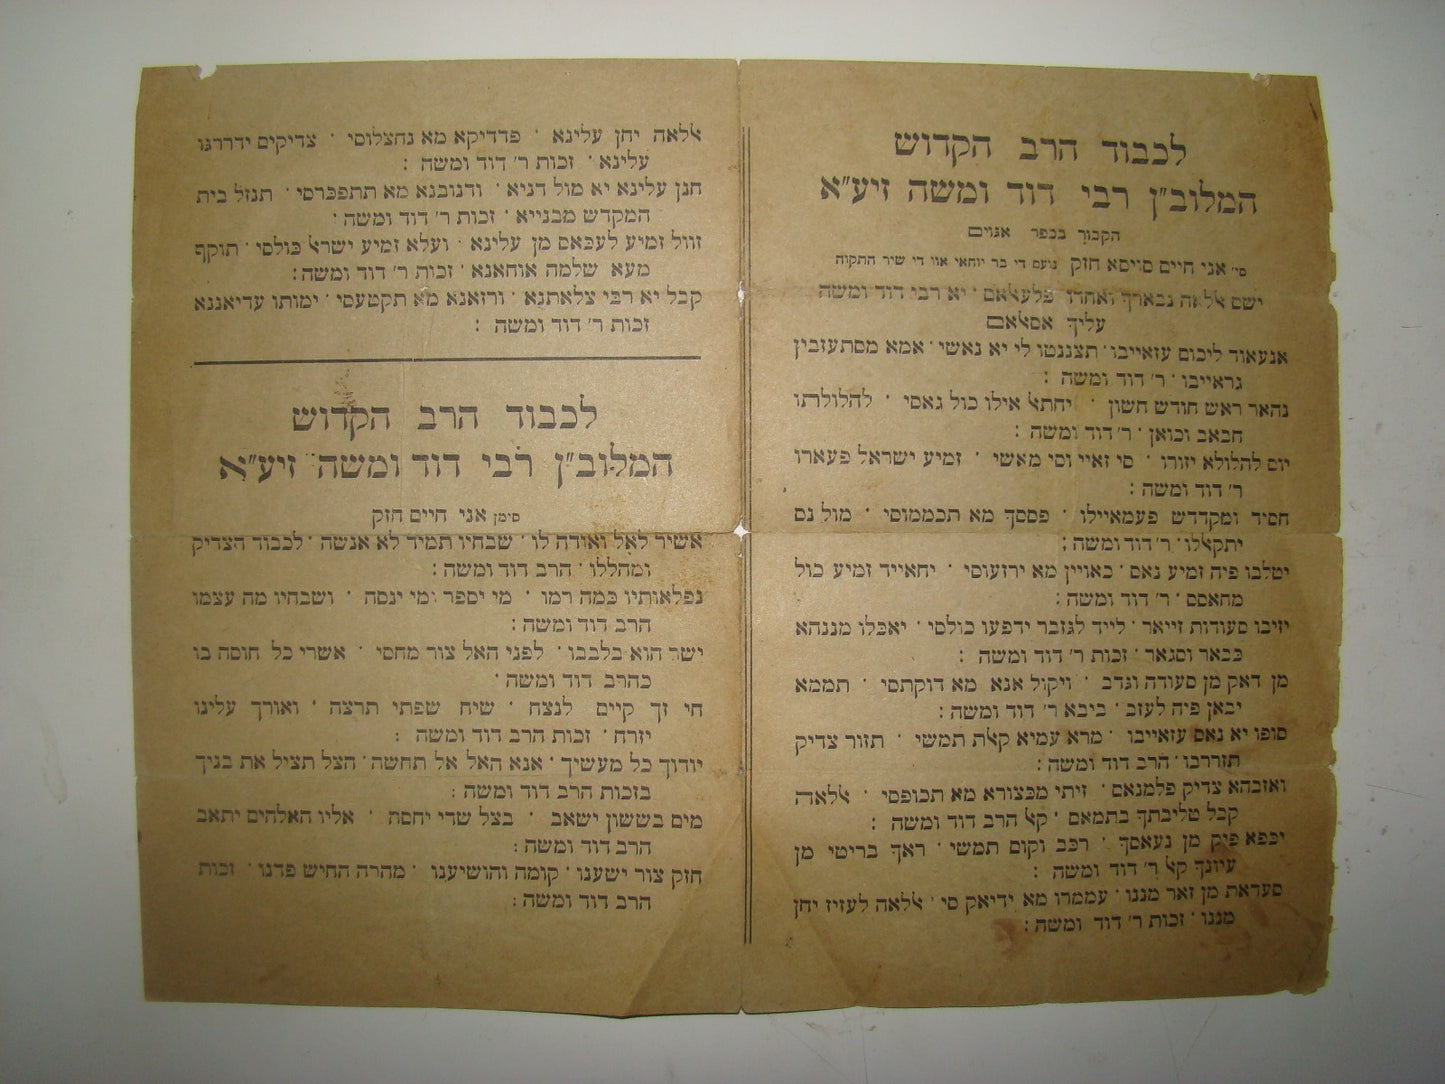 לכבוד הרב הקדוש
המלוב״ן רבי דוד ומשה זיע״א
הקבור בכפר אגויים
סי׳ אני חיים סויסא חזק נועם די בר יוחאי אוו די שיר התקוה
ישם אללאה נבארך ואחדו פלעלאם · יא רבי דוד ומשה
עליך אסלאם
אנעאוד ליכום עזאייבו · תצננטו לי יא נאשי · אמא מסתעזבין
גראייבו · ר׳ דוד ומשה :
נהאר ראש חודש חשון · יחתאל אילו כול גאסי · להלולתו
חבאב וכואן · ר׳ דוד ומשה :
יום להלולא יזורו · סי זאיי וסי מאשי · זמיע ישראל פעארו
ר׳ דוד ומשה :
חסיד ומקדדש פעמאיילו · פססך מא תכממוסי · מול נס
יתקאלו · ר׳ דוד ומשה :
יטלבו פיה זמיע נאס · כאויין מא ירזעוסי · יחאייד זמיע כול
מחאסס · ר׳ דוד ומשה :
יזיבו סעודות זייאר · לייד לגזבר ידפעו כולסי · יאכלו מננהא
כבאר וסגאר · זכות ר׳ דוד ומשה :
מן דאק מן סעודה וגדב · ויקול אנא מא דוקתסי · תממא
יבאן פיה לעזב · ביבא ר׳ דוד ומשה :
סופו יא נאס עזאייבו · מרא עמיא קאלת תמשי · תזור צדיק
תזררבו · הרב דוד ומשה :
ואזבהא צדיק פלמנאם · זיתי מכצורא מא תכופסי · אללאה
קבל טליבתך בתמאם · קאל הרב דוד ומשה :
יכפא פיק מן נעאסך · רכב וקום תמשי · ראך בריטי מן
עיונך קאל ר׳ דוד ומשה :
סעדאת מן זאר מננו · עממרו מא ידיאק סי · אללאה לעזיז יחן
מננו · זכות ר׳ דוד ומשה :
אללאה יחן עלינא · פדדיקא מא נחצלוסי · צדיקים ידררגו
עלינא · זכות ר׳ דוד ומשה :
חנן עלינא יא מול דניא · ודנובנא מא תתפכרסי · תנזל בית
המקדש מבנייא · זכות ר׳ דוד ומשה ·
זוול זמיע לעכאס מן עלינא · ועלא זמיע ישראל כולסי · תוקף
מעא שלמה אוחאנא · זכות ר׳ דוד ומשה :
קבל יא רבי צלאתנא · ורזאנא מא תקטעסי · ימותו עדיאננא
זכות ר׳ דוד ומשה :
לכבוד הרב הקדוש
המלוב״ן רבי דוד ומשה זיע״א
סימן אני חיים חזק
אשיר לאל ואודה לו · שבחיו תמיד לא אנשה · לכבוד הצדיק
ומהללו · הרב דוד ומשה :
נפלאותיו כמה רמו · מי יספר ומי ינסה · ושבחיו מה עצמו
הרב דוד ומשה :
ישר הוא בלבבו · לפני האל צור מחסי · אשרי כל חוסה בו
כהרב דוד ומשה ·
חי זך קיים לנצח · שיח שפתי תרצה · ואורך עלינו
יזרח · זכות הרב דוד ומשה :
יודוך כל מעשיך · אנא האל אל תחשה · הצל תציל את בניך
בזכות הרב דוד ומשה :
מים בששון ישאב · בצל שדי יחסה · אליו האלהים יתאב
הרב דוד ומשה :
חזק צור ישענו · קומה והושיענו · מהרה החיש פדנו · זכות
הרב דוד ומשה :